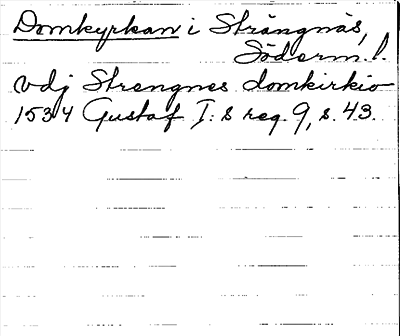 Domkyrkan i Strängnäs,
Söderm. l.
vdj Strengnes domkirkio
1534 Gustaf I:s reg. 9, s. 43.